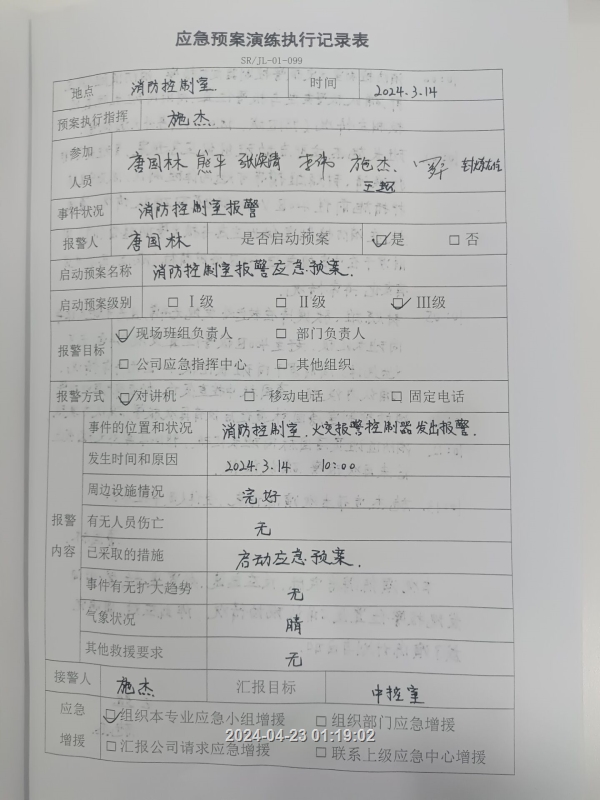 应急预案演练执行记录表
SR/JL-01-099
地点 消防控制室 时间 2024.3.14
预案执行指挥 施杰.
参加人员 唐国林 熊平 李伟 施杰.
事件状况 消防控制室报警
报警人 唐国林 是否启动预案 ☑是 □否
启动预案名称 消防控制室报警应急预案.
启动预案级别 □Ⅰ级 □Ⅱ级 ☑Ⅲ级
报警目标 ☑现场班组负责人 □部门负责人
□公司应急指挥中心 □其他组织
报警方式 ☑对讲机 □移动电话 □固定电话
报警内容
事件的位置和状况 消防控制室.火灾报警控制器发出报警.
发生时间和原因 2024.3.14 10:00
周边设施情况 完好
有无人员伤亡 无
已采取的措施 启动应急预案.
事件有无扩大趋势 无
气象状况 晴
其他救援要求 无
接警人 施杰 汇报目标 中控室
应急增援 ☑组织本专业应急小组增援 □组织部门应急增援
□汇报公司请求应急增援 □联系上级应急中心增援
2024-04-23 01:19:02